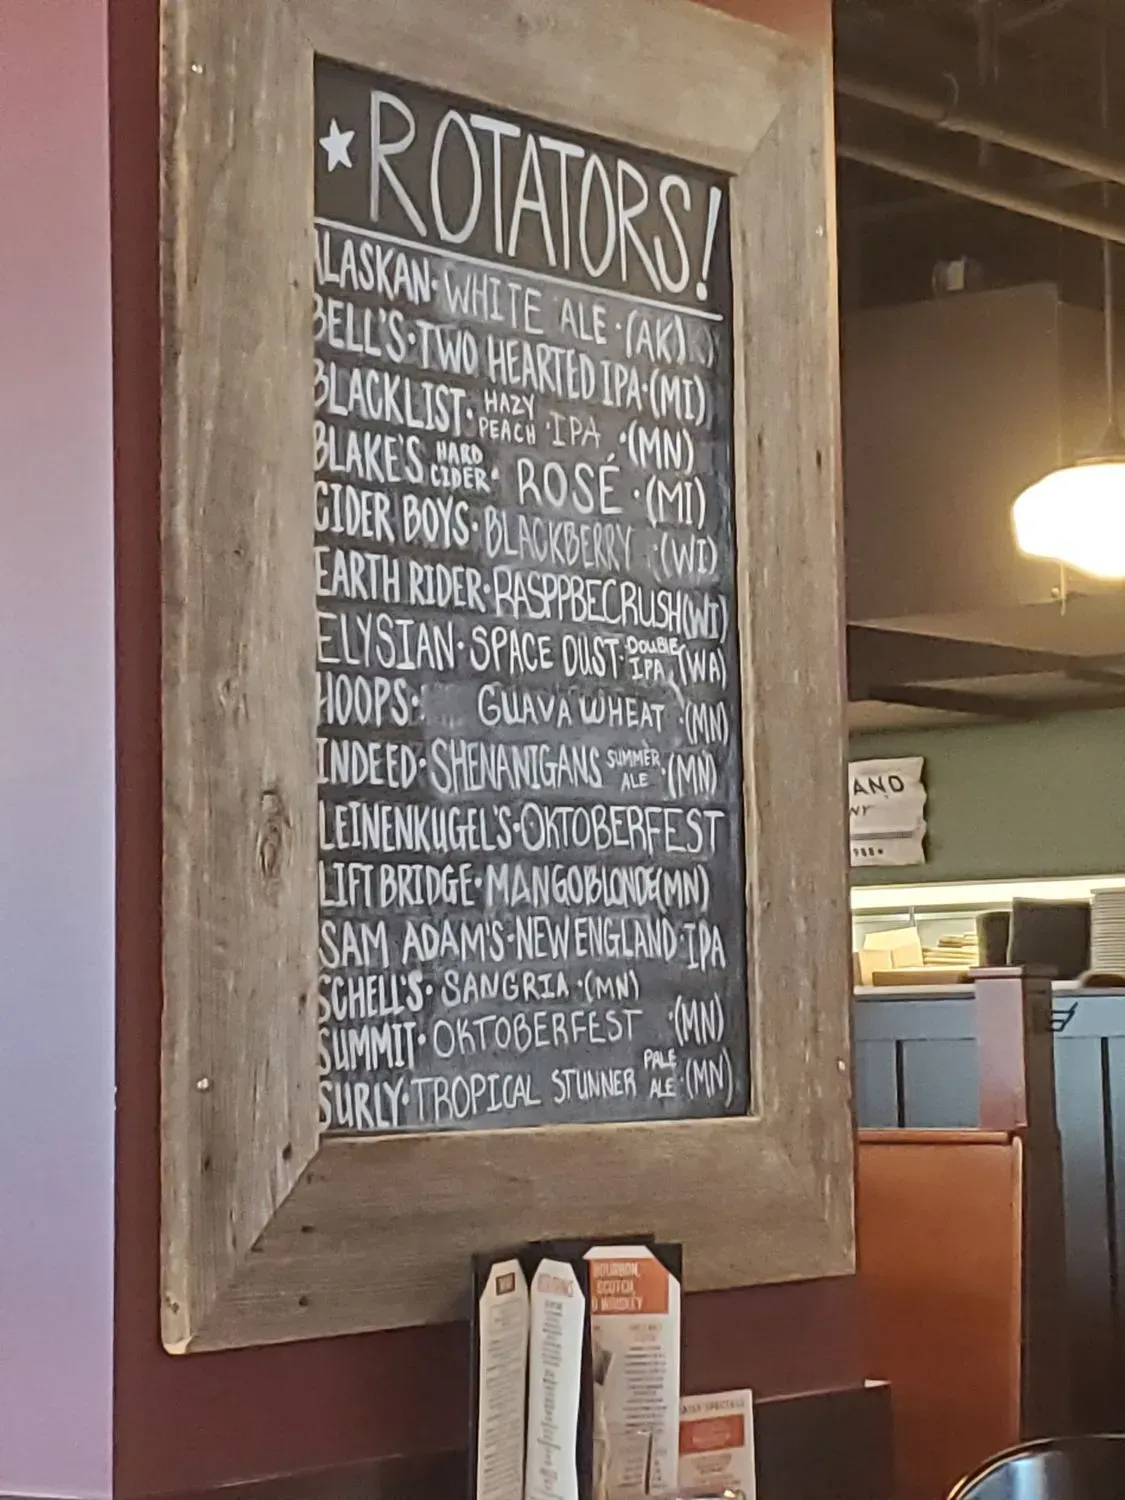 ★ ROTATORS!
ALASKAN · WHITE ALE · (AK)
BELL'S · TWO HEARTED IPA · (MI)
BLACKLIST · HAZY PEACH · IPA · (MN)
BLAKE'S HARD CIDER · ROSÉ · (MI)
CIDER BOYS · BLACKBERRY · (WI)
EARTH RIDER · RASPPBECRUSH (WI)
ELYSIAN · SPACE DUST · DOUBLE IPA · (WA)
HOOPS · GUAVA WHEAT · (MN)
INDEED · SHENANIGANS SUMMER ALE · (MN)
LEINENKUGEL'S · OKTOBERFEST
LIFT BRIDGE · MANGO BLONDE (MN)
SAM ADAM'S · NEW ENGLAND · IPA
SCHELL'S · SANGRIA · (MN)
SUMMIT · OKTOBERFEST · (MN)
SURLY · TROPICAL STUNNER PALE ALE · (MN)
AND
NY
988
BOURBON,
SCOTCH,
& WHISKEY
DAILY SPECIALS